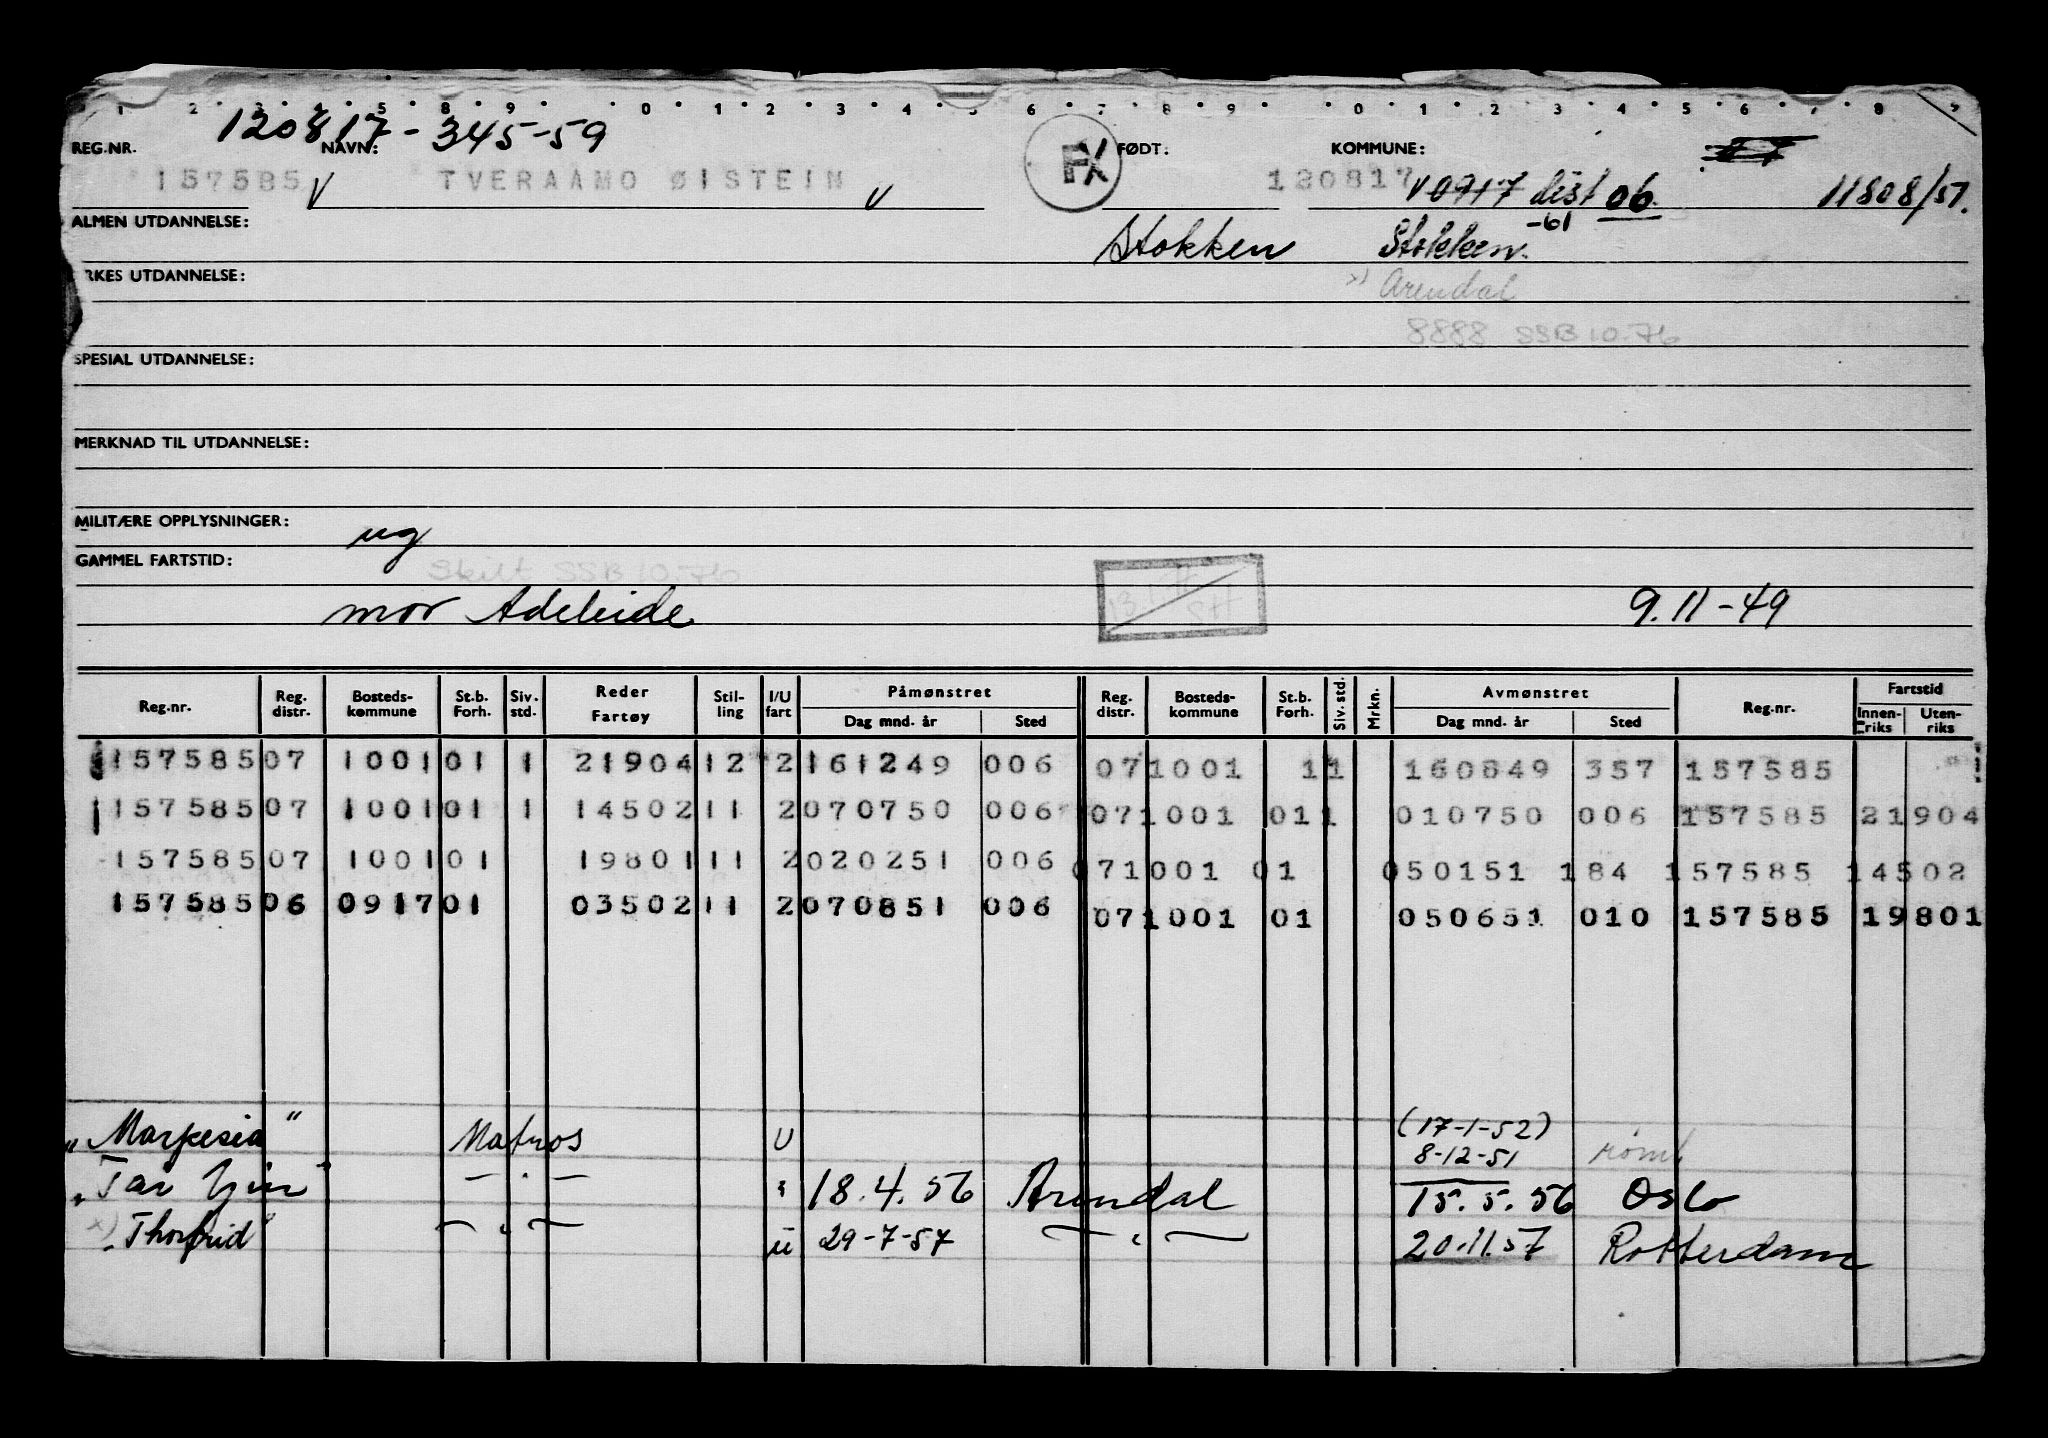 1 2 3 4 5 8 9 0 1 2 3 4 5 6 7 8 9 0 1 2 3 4 5 6 7 8 9
120817-345-59
REG.NR. NAVN: FØDT: KOMMUNE:
157585 V TVERAAMO ØISTEIN V 120817 V 0917 dist 06 11808/51.
-61
ALMEN UTDANNELSE: Stokken Stokken.
RKES UTDANNELSE: x) Arendal
8888 SSB 10-76
SPESIAL UTDANNELSE:
MERKNAD TIL UTDANNELSE:
MILITÆRE OPPLYSNINGER: ug
GAMMEL FARTSTID: Skilt SSB 10-76
mor Adeleide 9.11-49
Reg.nr. Reg. distr. Bosteds-kommune St.b. Forh. Siv. std. Reder Fartøy Stil-ling I/U fart Påmønstret Dag mnd. år Sted Reg. distr. Bosteds-kommune St.b. Forh. Siv. std. Mrkn. Avmønstret Dag mnd. år Sted Reg.nr. Fartstid Innen-riks Uten-riks
157585 07 1001 01 1 21904 12 2 161249 006 07 1001 11 160849 357 157585
157585 07 1001 01 1 14502 11 2 070750 006 07 1001 01 1 010750 006 157585 21904
157585 07 1001 01 19801 11 2 020251 006 07 1001 01 050151 184 157585 14502
157585 06 0917 01 03502 11 2 070851 006 07 1001 01 050651 010 157585 19801
(17-1-52)
"Marpesia" Matros U 8-12-51 rømt
- . - 18.4.56 Arendal 15.5.56 Oslo
x) Thorfrid - " - u 29-7-57 - " - 20.11.57 Rotterdam